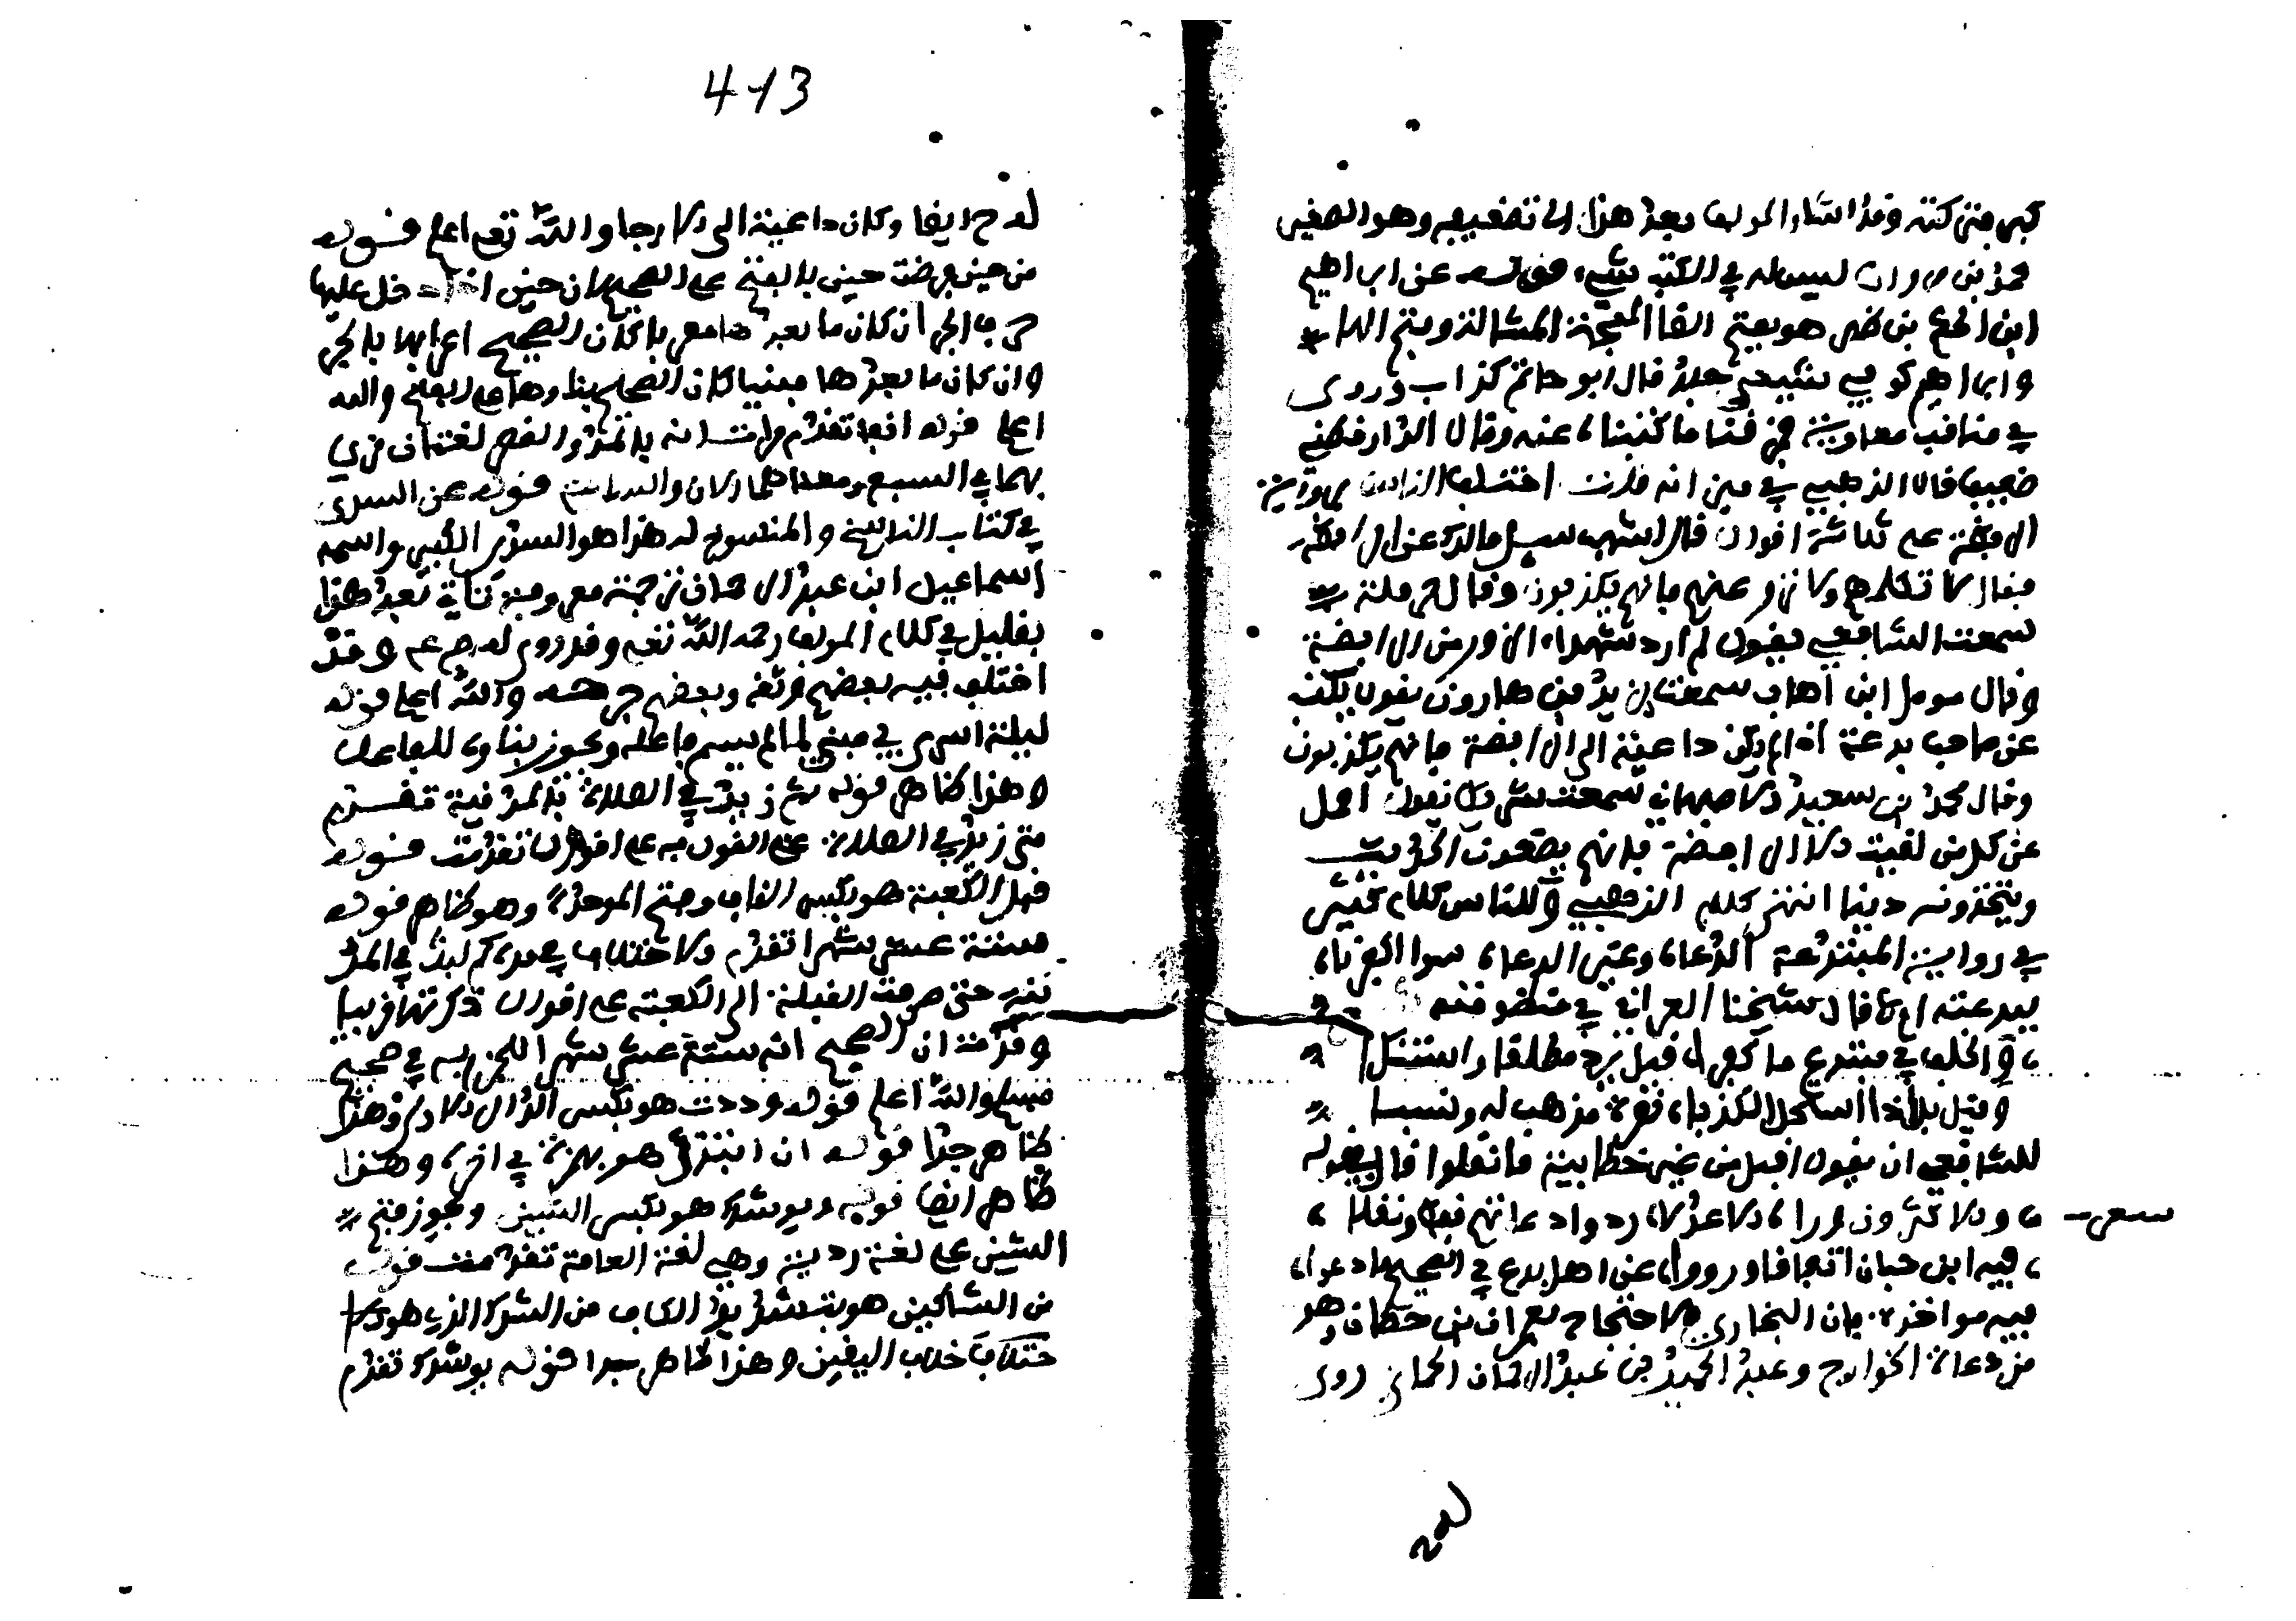 413
كبير متى كتبه وقد أشار المولف بعد هذا إلى تضعيفه وهو الصغير
محمد بن مروان ليس له في الكتب شيء قوله عن ابراهيم
ابن الحكم بن ظهير هو بضم الظا المعجمة المشالة وفتح الهاء
وابراهيم كوفي شيعي جلد قال ابو حاتم كذاب روى
في مثالب معاوية فمزقنا ما كتبنا عنه وقال الدارقطني
ضعيف قال الذهبي في ميزانه قلت اختلف الناس في رواية
الرافضة على ثلاثة اقوال قال اشهب سيل مالك عن الرافضة
فقال لا تكلمهم ولا ترو عنهم فانهم يكذبون وقال حرملة
سمعت الشافعي يقول لم ار اشهد بالزور من الرافضة
وقال مومل ابن اهاب سمعت يزيد بن هارون يقول يكتب
عن صاحب بدعة اذا لم يكن داعية الا الرافضة فانهم يكذبون
وقال محمد بن سعيد الاصبهاني سمعت شريكا يقول احمل
عن كل من لقيت الا الرافضة فانهم يضعون الحديث
ويتخذونه دينا انتهى كلام الذهبي وللناس كلام كثير
في رواية المبتدعة الدعاة وغير الدعاة سوا الكفرة
ببدعته ام لا قال شيخنا العراقي في منظومته
والخلف في مبتدع ما كفرا قيل يرد مطلقا واستنكرا
وقيل بل اذا استحل الكذبا نصرة مذهب له ونسبا
للشافعي اذ يقول اقبل من غير خطابية ما نقلوا قال بعضهم
والاكثرون وراه الاعدلا ردوا دعاتهم فقط ونقلا
فيه ابن حبان اتفاقا ورووا عن اهل بدع في الصحيح ما دعوا
سعر
فيه مواخذة فان البخاري احتج بعمران بن حطان وهو
من دعاة الخوارج وعبد الحميد بن عبد الرحمان الحماني روى
له خ ايضا وكان داعية الى الارجا والله تعالى اعلم قوله
من حين فرضت حين بالفتح على الصحيح لان حين اذا دخل عليها
حرف الجر ان كان ما بعدها معربا كان الصحيح اعرابها بالجر
وان كان ما بعدها مبنيا كان الصحيح بناوها على الفتح والله
اعلم قوله انفا تقدم مرات انه بالمد والقصر لغتان قري
بهما في السبع ومعناهما الان والساعة قوله عن السدي
في كتاب الناسخ والمنسوخ له هذا هو السدي الكبير واسمه
اسماعيل ابن عبد الرحمان ترجمته معروفة تاتي بعد هذا
بقليل في كلام المولف رحمه الله تعالى وقد روى له م عم وقد
اختلف فيه بعضهم وثقه وبعضهم جرحه والله اعلم قوله
ليلة اسري في مبني لما لم يسم فاعله ويجوز بناوه للفاعل
وهذا ظاهر قوله ثم زيد في الصلاة بالمدينة تقدم
متى زيد في الصلاة على القول به على اقوال تقدمت قوله
قبل الكعبة هو بكسر القاف وفتح الموحدة وهو ظاهر قوله
ستة عشر شهرا تقدم الاختلاف في مدة كم لبث في المدينة
حتى صرفت القبلة الى الكعبة على اقوال ذكرتها قريبا
وقدمت ان الصحيح انه ستة عشر شهرا للجزم به في صحيح
مسلم والله اعلم قوله وددت هو بكسر الدال الاولى وهذا
ظاهر جدا قوله ان ابتدئ هو بهمزة في اخره وهذا
ظاهر ايضا قوله ويوشك هو بكسر الشين ويجوز فتح
الشين على لغة ردية وهي لغة العامة تقدمت قوله
من الشاكين هو بتشديد الكاف من الشك الذي هو
خلاف اليقين وهذا ظاهر جدا قوله يوشك تقدم